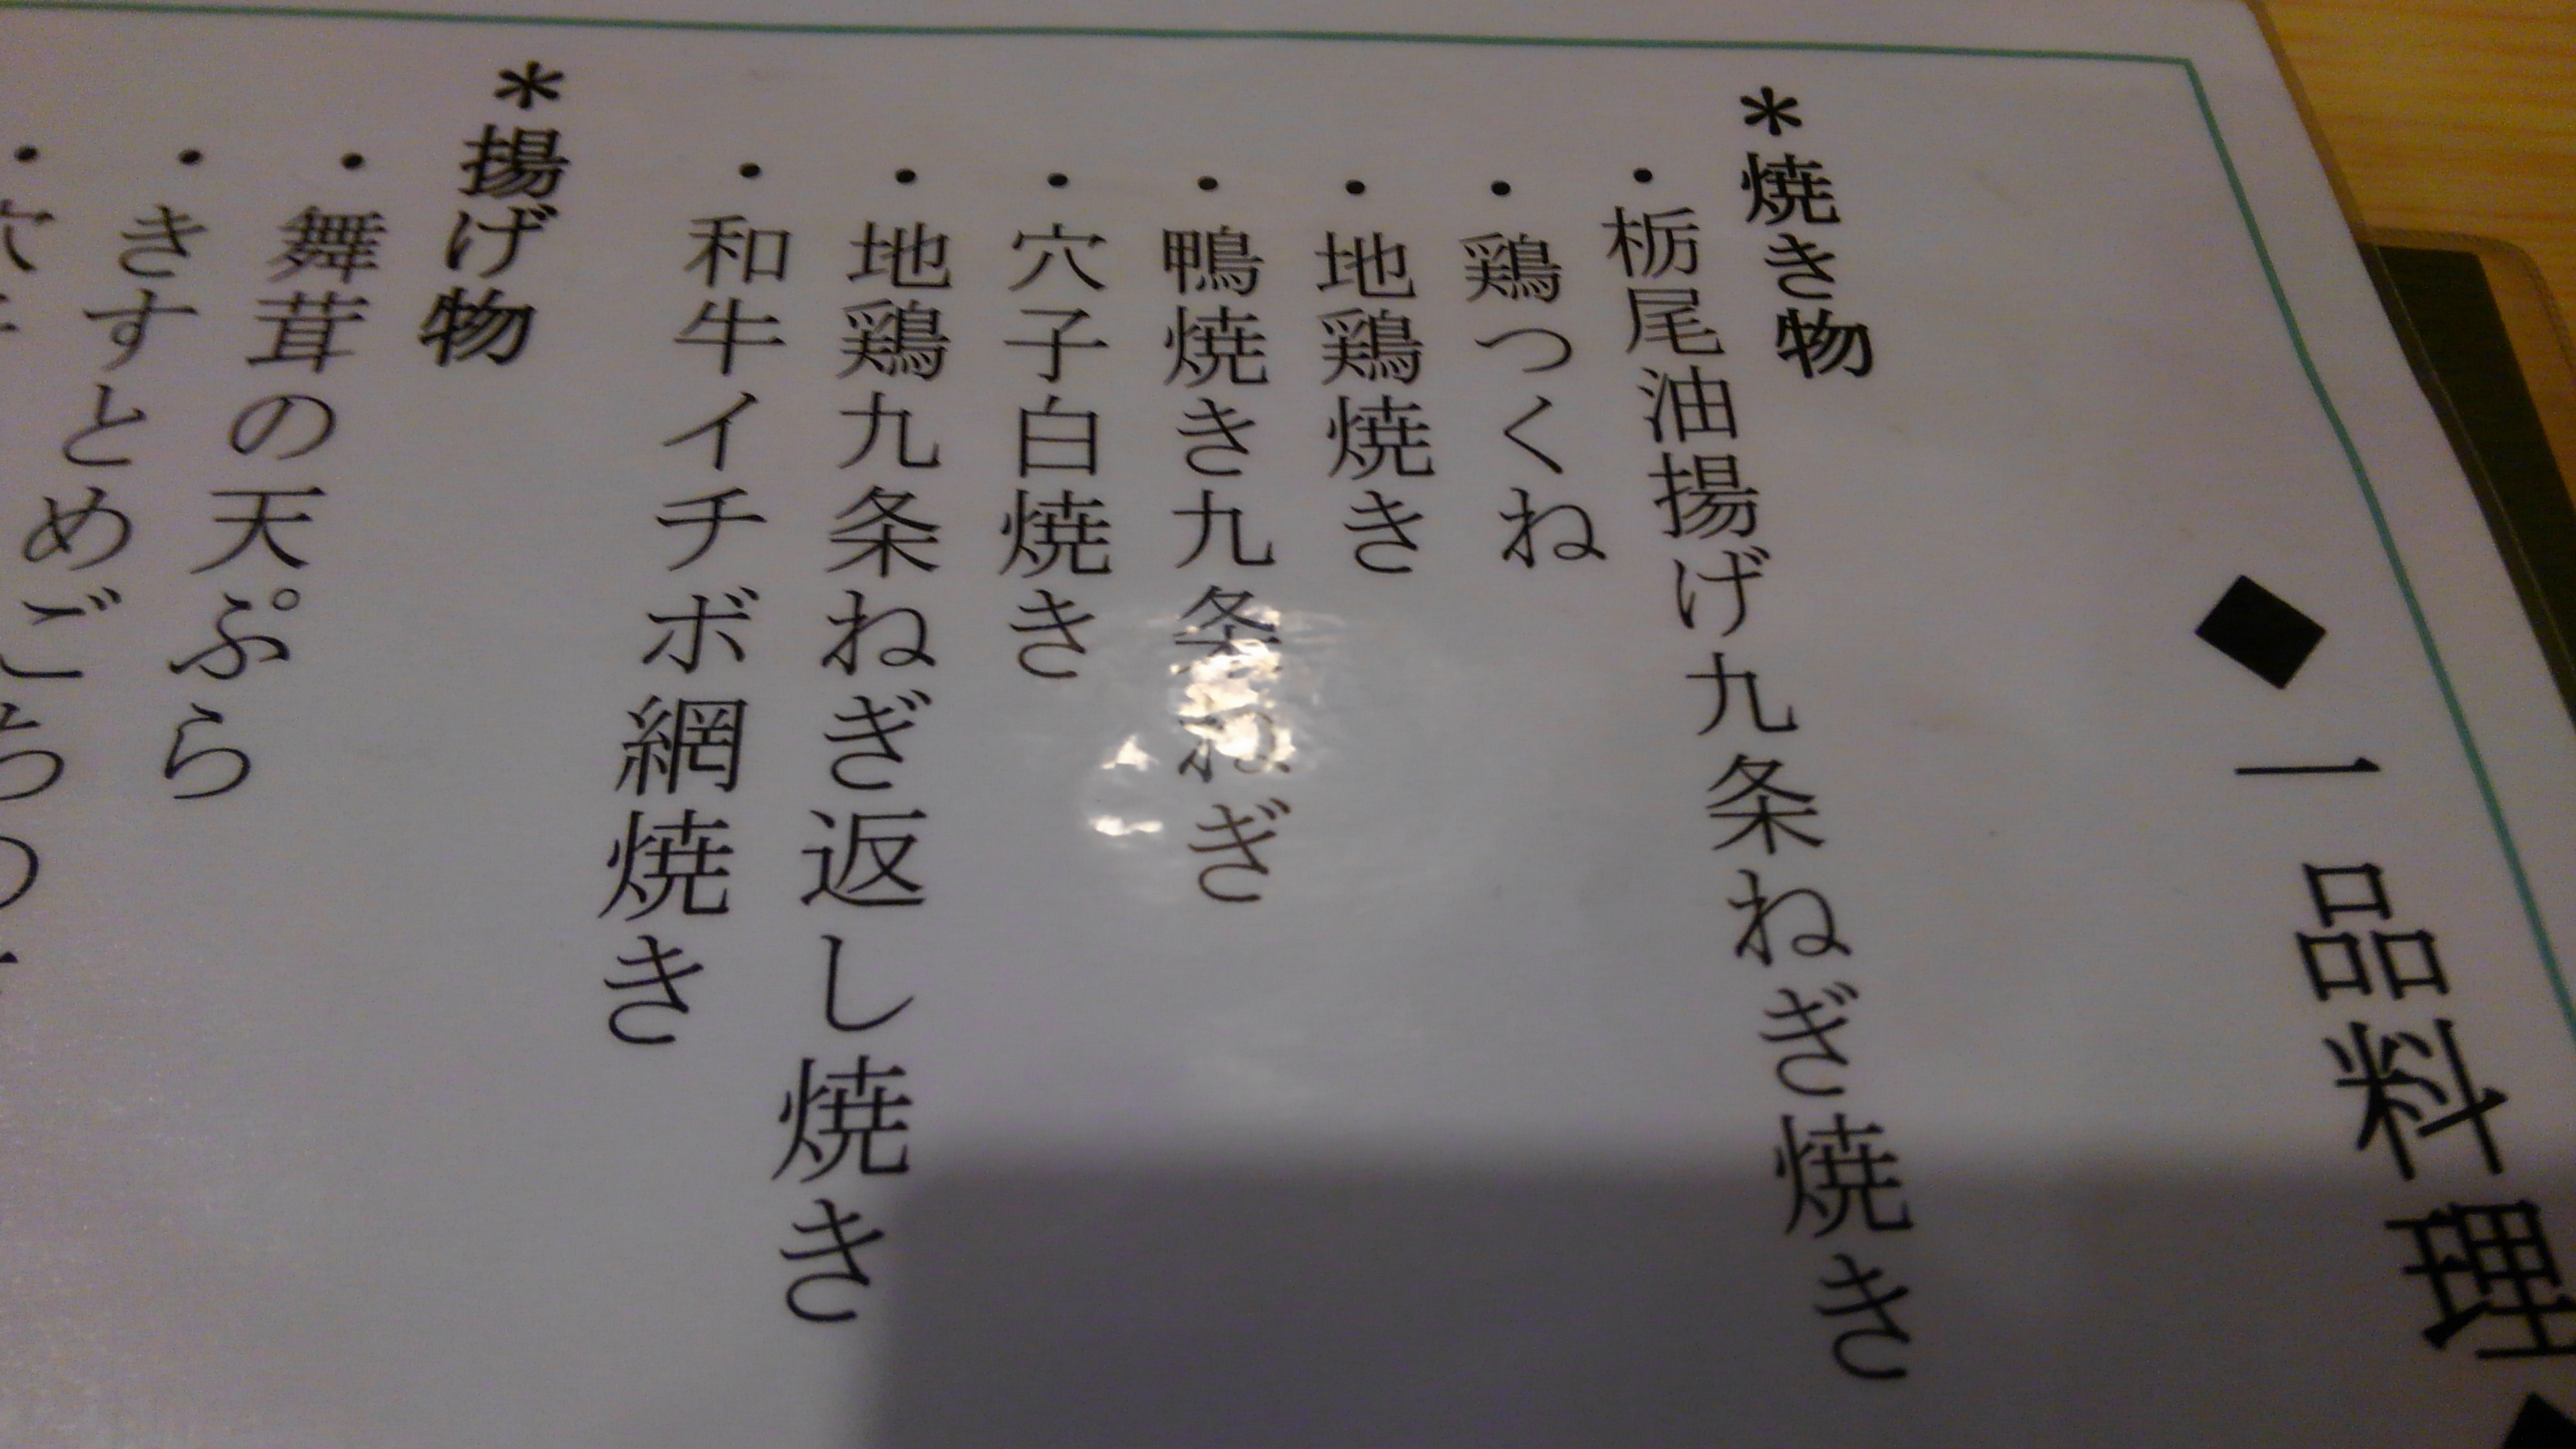 ◆一品料理◆
＊焼き物
・栃尾油揚げ九条ねぎ焼き
・鶏つくね
・地鶏焼き
・鴨焼き九条ねぎ
・穴子白焼き
・地鶏九条ねぎ返し焼き
・和牛イチボ網焼き
＊揚げ物
・舞茸の天ぷら
・きすとめごちの